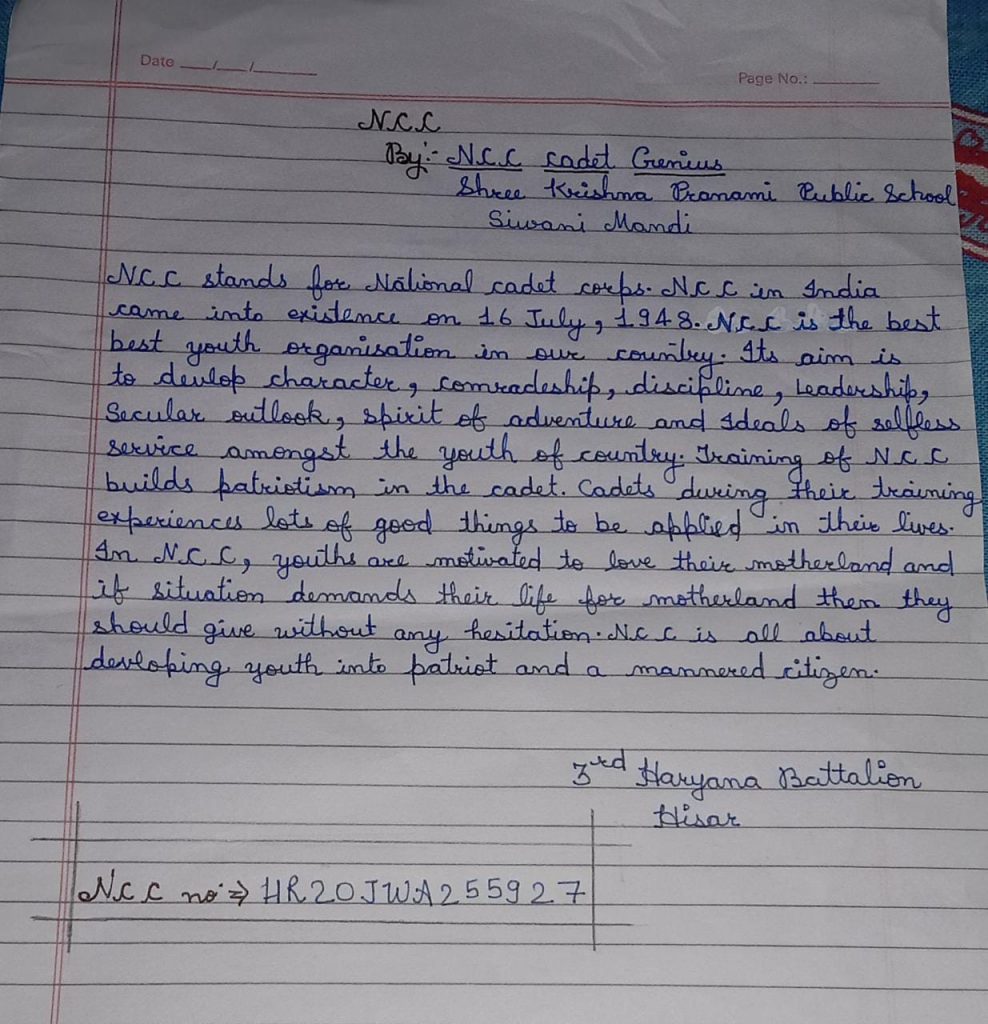 Date __/__/____
Page No.: ______
N.C.C
By:- N.C.C cadet Genius
Shree Krishna Pranami Public School
Siwani Mandi
N.C.C stands for National cadet corps. N.C.C in India
came into existence on 16 July, 1948. N.C.C is the best
best youth organisation in our country. Its aim is
to devlop character, comradeship, discipline, leadership,
Secular outlook, spirit of adventure and Ideals of selfless
service amongst the youth of country. Training of N.C.C
builds patriotism in the cadet. Cadets during their training
experiences lots of good things to be applied in their lives.
In N.C.C, youths are motivated to love their motherland and
if situation demands their life for motherland then they
should give without any hesitation. N.C.C is all about
devloping youth into patriot and a mannered citizen.
3rd Haryana Battalion
Hisar
N.C.C no:⇒ HR20JWA255927